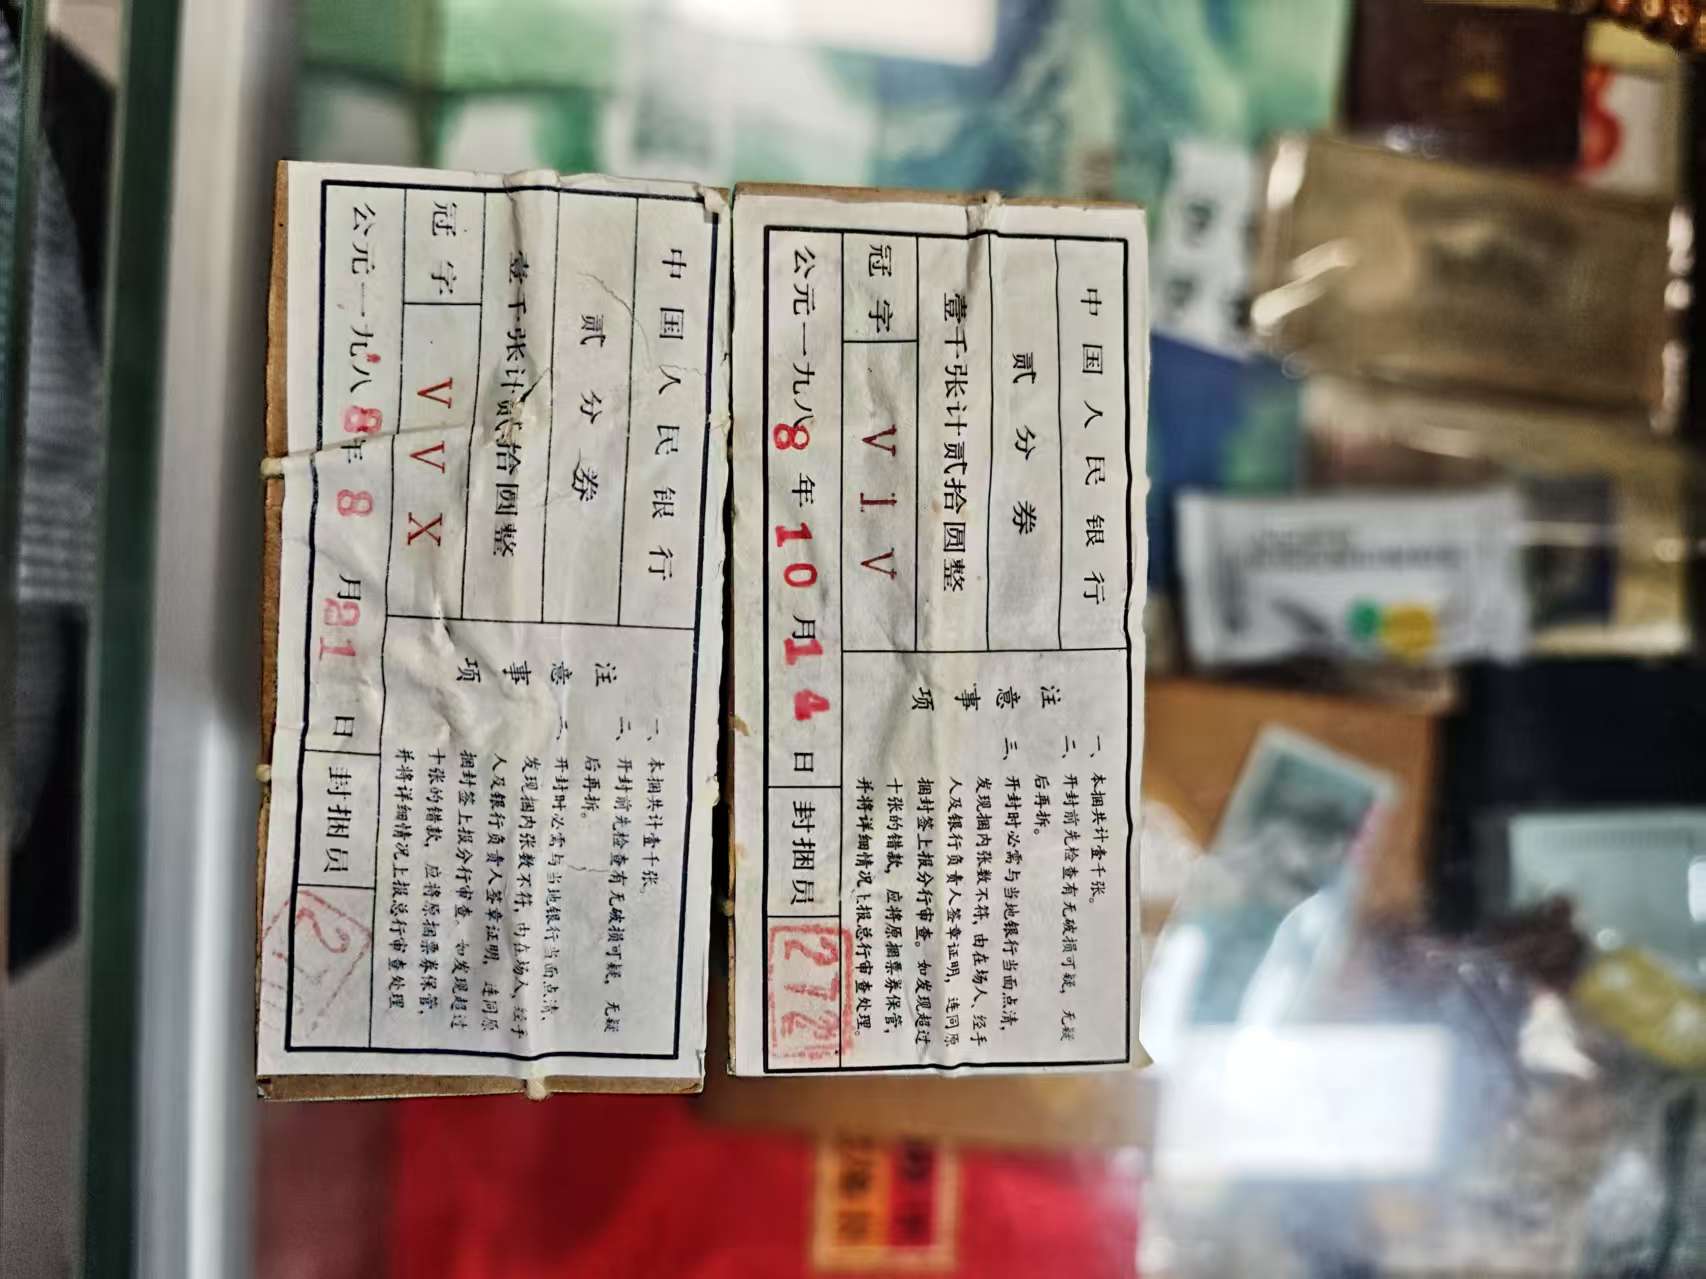 中国人民银行
贰分券
壹千张计贰拾圆整
冠字 V I V
注意事项
一、本捆共计壹千张。
二、开封前先检查有无破损可疑，无疑
后再拆。
三、开封时必需与当地银行当面点清，
发现捆内张数不符，由在场人、经手
人及银行负责人签章证明，连同原
捆封签上报分行审查。如发现超过
十张的错款，应将原捆票券保管，
并将详细情况上报总行审查处理。
公元一九八8年10月14日 封捆员
中国人民银行
贰分券
壹千张计贰拾圆整
冠字 V V X
注意事项
一、本捆共计壹千张。
二、开封前先检查有无破损可疑，无疑
后再拆。
三、开封时必需与当地银行当面点清，
发现捆内张数不符，由在场人、经手
人及银行负责人签章证明，连同原
捆封签上报分行审查。如发现超过
十张的错款，应将原捆票券保管，
并将详细情况上报总行审查处理
公元一九八8年8月21日 封捆员